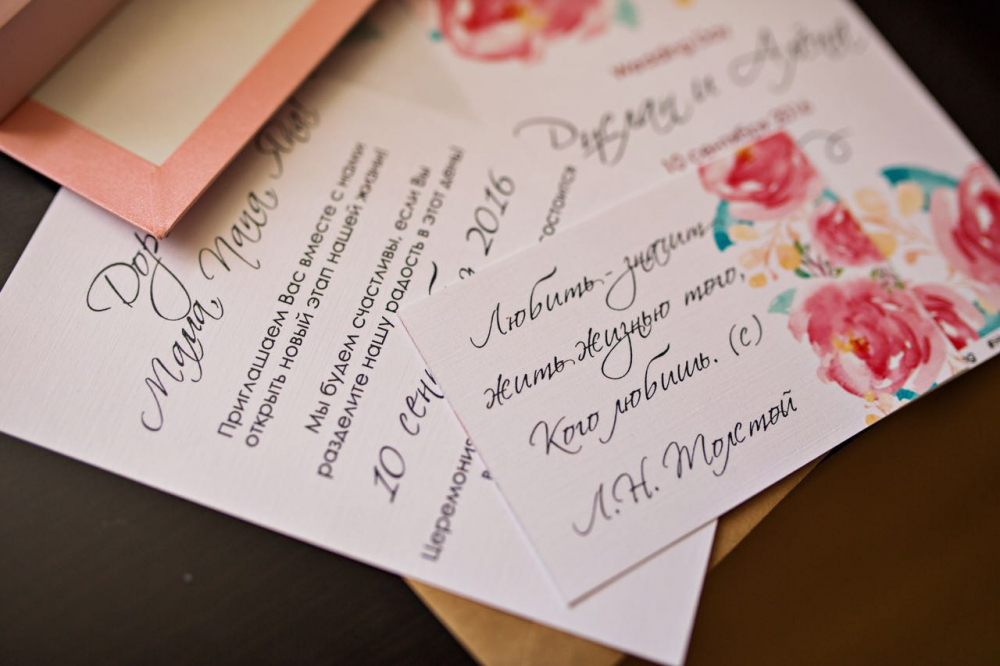 Wedding Day
Руслан и
10 сентября 2016
Мама Папа
Приглашаем Вас вместе с нами
открыть новый этап нашей жизни!
Мы будем счастливы, если Вы
разделите нашу радость в этот день!
10 2016
Церемония
Любить - значит
жить жизнью того,
Кого любишь. (с)
Л.Н. Толстой